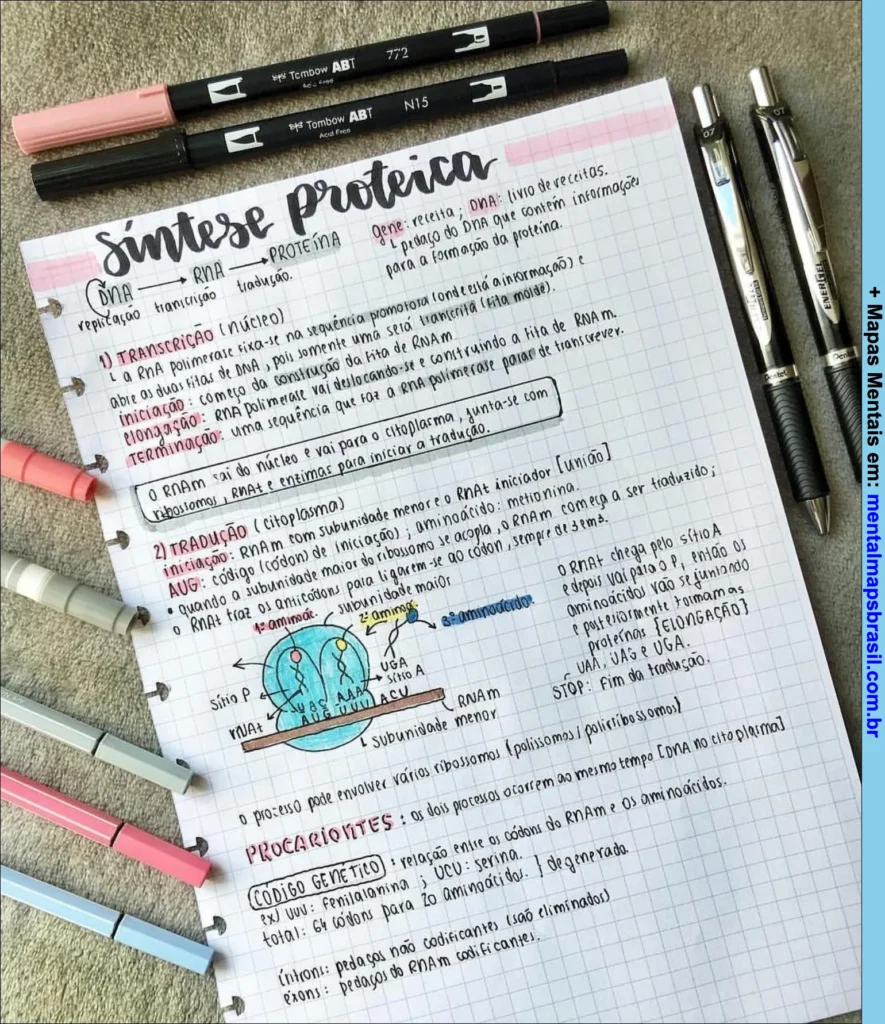 Tombow ABT 772
Acid Free
Tombow ABT N15
Acid Free
07
07
Pentel
ENERGEL
Pentel
síntese proteica
DNA → RNA → PROTEÍNA
replicação transcrição tradução.
gene: receita; DNA: livro de receitas.
↳ pedaço do DNA que contém informações
para a formação da proteína.
1) TRANSCRIÇÃO (núcleo)
↳ a RNA polimerase fixa-se na sequência promotora (onde está a informação) e
abre as duas fitas de DNA, pois somente uma será transcrita (fita molde).
iniciação: começo da construção da fita de RNAm
elongação: RNA polimerase vai deslocando-se e construindo a fita de RNAm.
TERMINAÇÃO: uma sequência que faz a RNA polimerase parar de transcrever.
O RNAm sai do núcleo e vai para o citoplasma, junta-se com
ribossomos, RNAt e enzimas para iniciar a tradução.
2) TRADUÇÃO (citoplasma)
iniciação: RNAm com subunidade menor e o RNAt iniciador [união]
AUG: código (códon) de iniciação; aminoácido: metionina.
• quando a subunidade maior do ribossomo se acopla, o RNAm começa a ser traduzido;
o RNAt traz os anticódons para ligarem-se ao códon, sempre de 3 em 3.
1º aminoác.
subunidade maior
2º aminoá.
3º aminoácido.
UGA
sítio A
sítio P
rNAt
UAC AAA
AUG UUU ACU
RNAm
↳ subunidade menor
O RNAt chega pelo sítio A
e depois vai para o P, então os
aminoácidos vão se juntando
e posteriormente formam as
proteínas [ELONGAÇÃO]
UAA, UAG e UGA.
STOP: fim da tradução.
o processo pode envolver vários ribossomos (polissomos/ polirribossomos)
PROCARIONTES: os dois processos ocorrem ao mesmo tempo [DNA no citoplasma]
CÓDIGO GENÉTICO: relação entre os códons do RNAm e os aminoácidos.
ex/ UUU: fenilalanina; UCU: serina.
total: 64 códons para 20 aminoácidos. } degenerado.
íntrons: pedaços não codificantes (são eliminados)
éxons: pedaços do RNAm codificantes.
+ Mapas Mentais em: mentalmapsbrasil.com.br